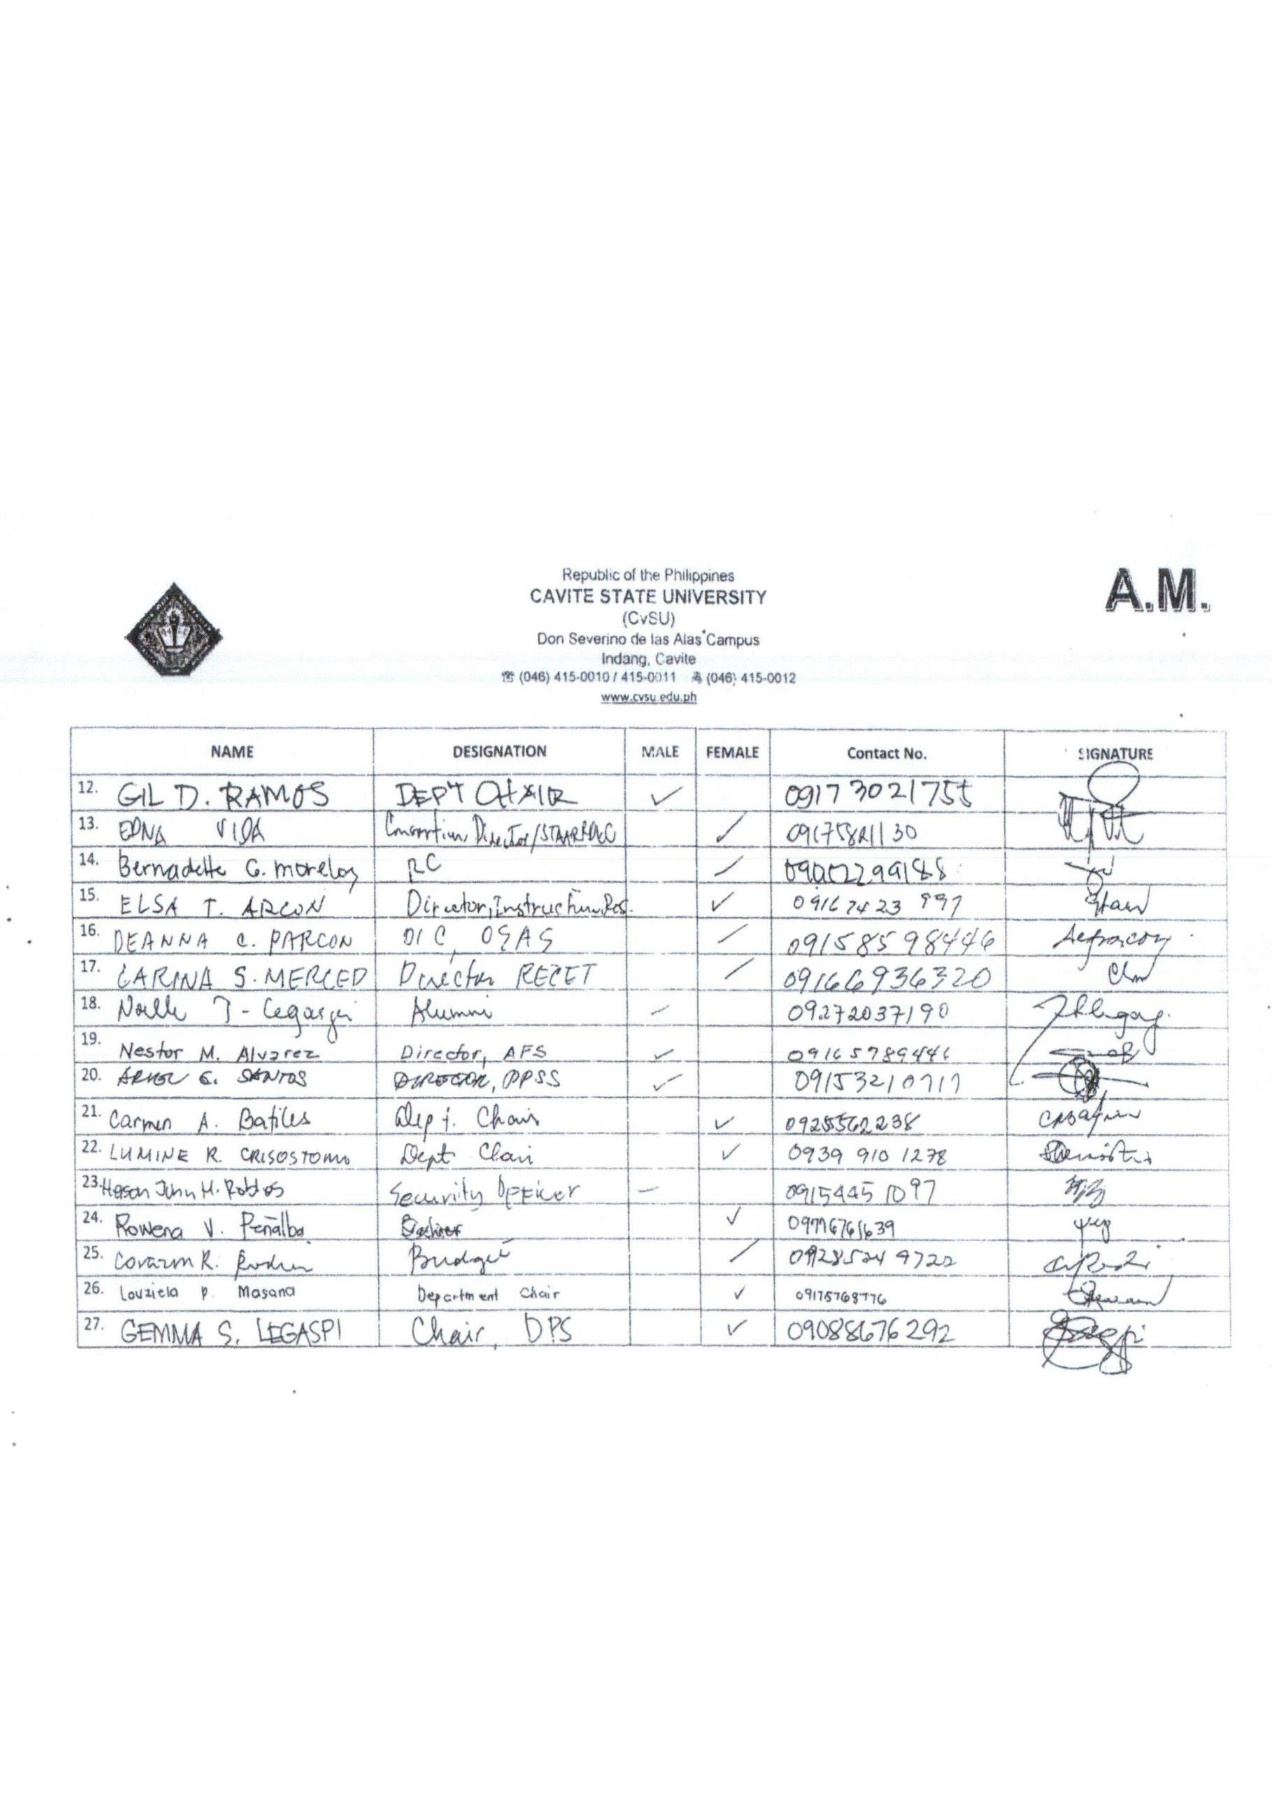 Republic of the Philippines
A.M.
CAVITE STATE UNIVERSITY
(CvSU)
Don Severino de las Alas Campus
Indang, Cavite
☏ (046) 415-0010 / 415-0011 (046) 415-0012
www.cvsu.edu.ph
NAME DESIGNATION MALE FEMALE Contact No. SIGNATURE
12. GIL D. RAMOS DEPT CHAIR ✓ 09173021755
13. EDNA VIDA Consortium Director/STAARRDEC ✓ 09175821130
14. Bernadette G. Morelos RC ✓
15. ELSA T. ARCON Director, Instruction ✓ 09167423997
16. DEANNA C. PARCON OIC, OSAS ✓ 09158598446
17. CARINA S. MERCED Director RECET ✓ 09166936320
18. Alumni ✓ 09272037190
19. Nestor M. Alvarez Director, AFS ✓ 09165789446
20. SANTOS DIRECTOR, PPSS ✓ 09153210717
21. Carmen A. Batiles Dept. Chair ✓ 0928562238
22. LUMINE R. CRISOSTOMO Dept Chair ✓ 0939 910 1278
23. John M. Robles Security Officer ✓ 0915445 1097
24. Rowena V. Peñalba ✓
25. Corazon R. Budget ✓ 0928524 9722
26. Louziela P. Masana Department Chair ✓ 09175768776
27. GEMMA S. LEGASPI Chair, DPS ✓ 09088676292